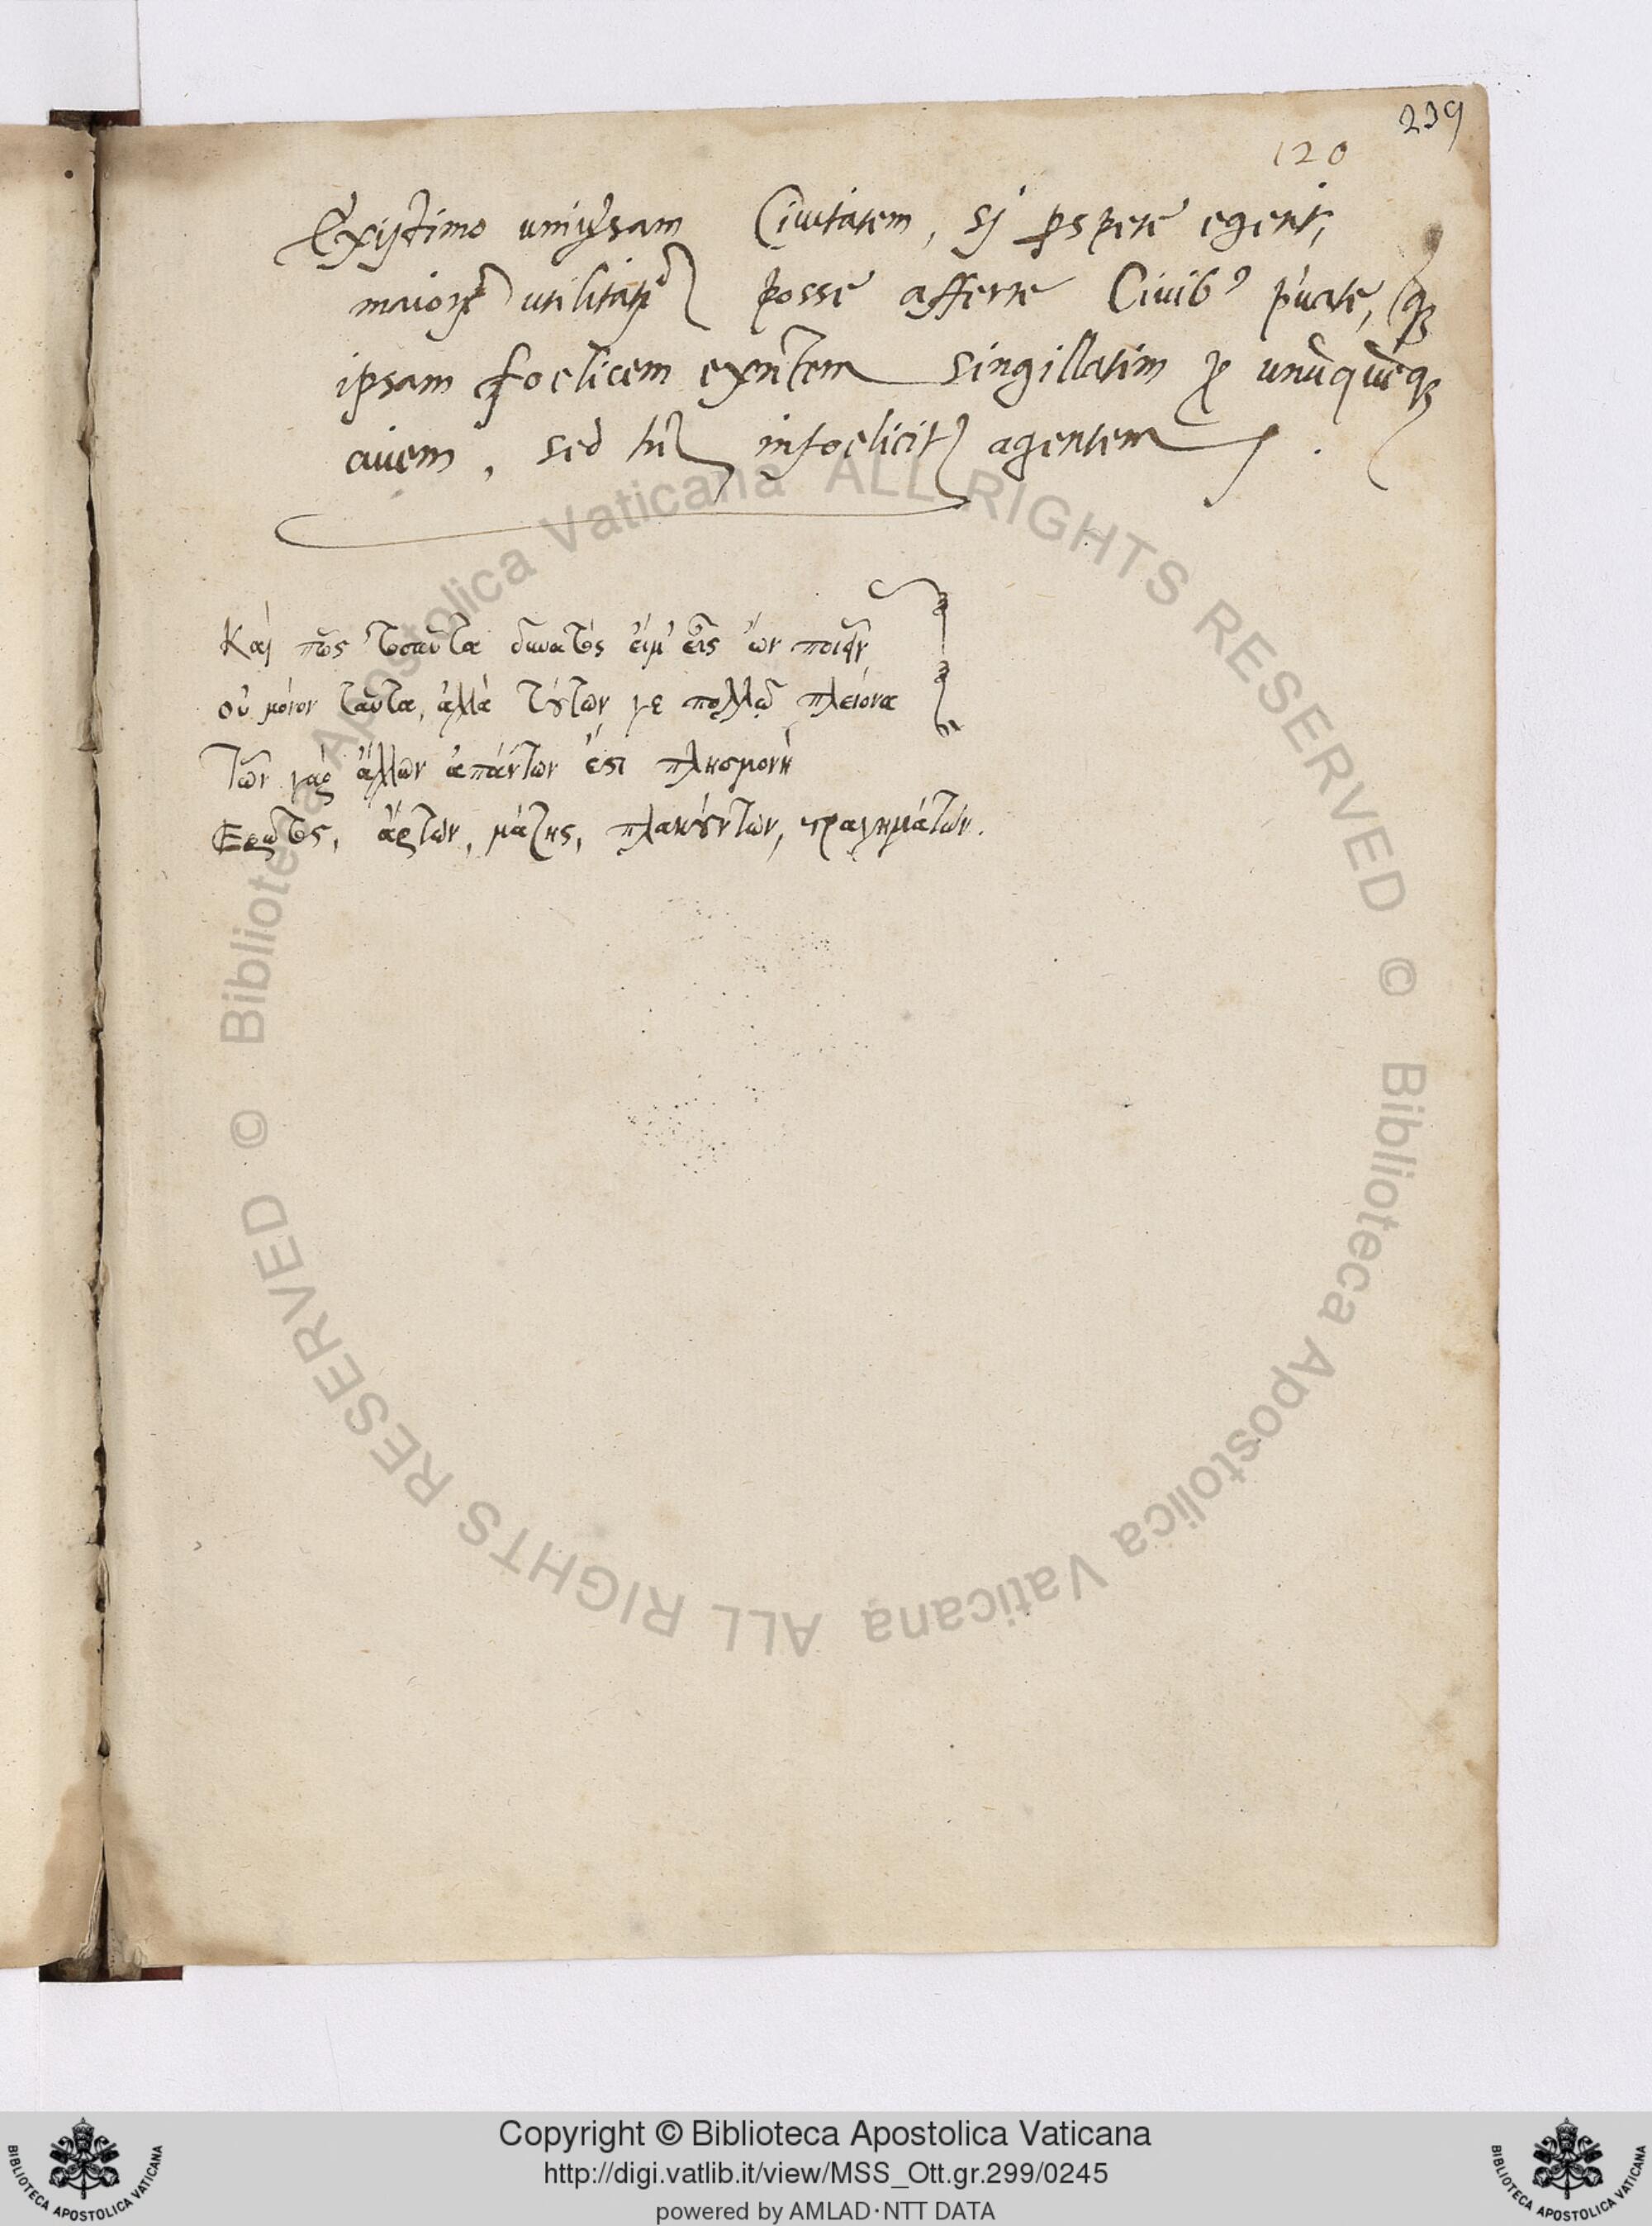 239
120
Exijstimo universam Civitatem, sj prospere egerit,
maiorem utilitatem posse afferre Civibus private, quam
ipsam foelicem existentem singillatim per unumquemque
civem, sed tamen infoeliciter agentem.
Καὶ πῶς τοσαῦτα δυνατός εἰμ' εἷς ὢν ποιεῖν,
οὐ μόνον ταῦτα, ἀλλὰ τούτων γε πολλῷ πλείονα
Τῶν γὰρ ἄλλων ἁπάντων ἔστι πλησμονὴ
Ερωτος, ἄρτων, μάζης, πλακούντων, τραγημάτων.
© Biblioteca Apostolica Vaticana ALL RIGHTS RESERVED © Biblioteca Apostolica Vaticana ALL RIGHTS RESERVED
Copyright © Biblioteca Apostolica Vaticana
http://digi.vatlib.it/view/MSS_Ott.gr.299/0245
powered by AMLAD·NTT DATA
BIBLIOTECA APOSTOLICA VATICANA
BIBLIOTECA APOSTOLICA VATICANA